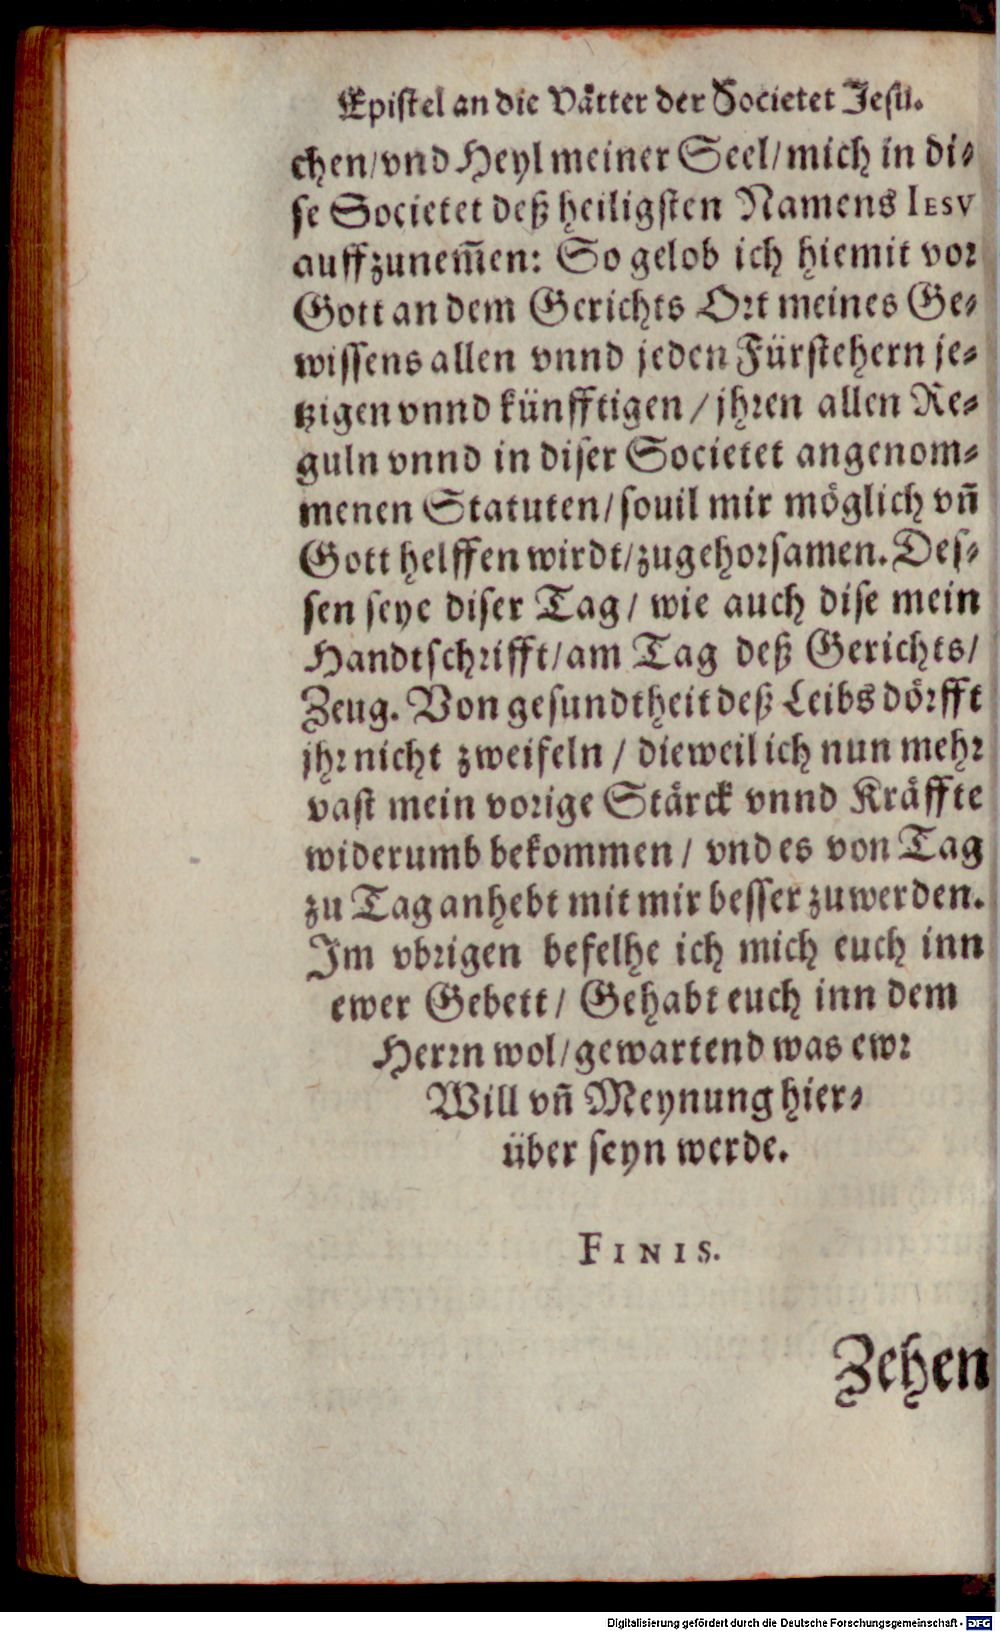 Epistel an die Vätter der Societet Jesu.
chen/vnd Heyl meiner Seel/mich in di⸗
se Societet deß heiligsten Namens IESV
auffzunem̄en: So gelob ich hiemit vor
Gott an dem Gerichts Ort meines Ge⸗
wissens allen vnnd jeden Fürstehern je⸗
tzigen vnnd künfftigen / jhren allen Re⸗
guln vnnd in diser Societet angenom⸗
menen Statuten/souil mir möglich vñ
Gott helffen wirdt/zugehorsamen. Des⸗
sen seye diser Tag/ wie auch dise mein
Handtschrifft/am Tag deß Gerichts/
Zeug. Von gesundtheit deß Leibs dörfft
jhr nicht zweifeln / dieweil ich nun mehr
vast mein vorige Stärck vnnd Kräffte
widerumb bekommen / vnd es von Tag
zu Tag anhebt mit mir besser zuwerden.
Im vbrigen befelhe ich mich euch inn
ewer Gebett/ Gehabt euch inn dem
Herrn wol/gewartend was ewr
Will vñ Meynung hier⸗
über seyn werde.
FINIS.
Zehen
Digitalisierung gefördert durch die Deutsche Forschungsgemeinschaft - DFG